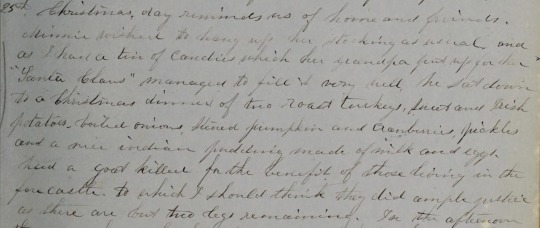 25th Christmas, day reminds us of home and friends.
Minnie wished to hang up her stocking as usual, and
as I had a tin of candies which her grandpa put up for her
"Santa Claus" managed to fill it very well, We sat down
to a Christmas dinner of two roast turkeys, sweet and Irish
potatoes, boiled onions, stewed pumpkin and cranberries, pickles
and a nice indian pudding made of milk and eggs.
had a goat killed for the benefit of those living in the
forecastle, to which I should think they did ample justice
as there are but two legs remaining. In the afternoon